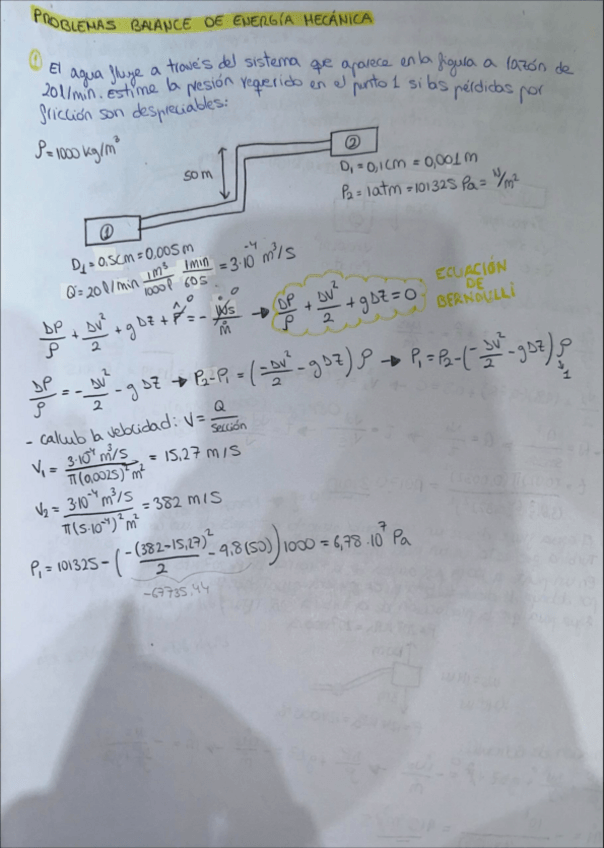 PROBLEMAS BALANCE DE ENERGÍA MECÁNICA
① El agua fluye a través del sistema que aparece en la figura a razón de
20 l/min. estime la presión requerido en el punto 1 si las pérdidas por
fricción son despreciables:
ρ = 1000 kg/m³
②
50 m
D₁ = 0,1 cm = 0,001 m
P₂ = 1 atm = 101325 Pa = N/m²
①
D₁ = 0.5 cm = 0,005 m
Q = 20 l/min · 1 m³/1000 l · 1 min/60 s = 3·10⁻⁴ m³/s
ECUACIÓN DE BERNOULLI
ΔP/ρ + ΔV²/2 + gΔZ + F̂⁰ = - Ẇs⁰/ṁ → ΔP/ρ + ΔV²/2 + gΔZ = 0
ΔP/ρ = - ΔV²/2 - gΔZ → P₂-P₁ = (-ΔV²/2 - gΔZ) ρ → P₁ = P₂ - (-ΔV²/2 - gΔZ) ρ
1
- calculo la velocidad: V = Q/sección
V₁ = 3·10⁻⁴ m³/s / π(0,0025)² m² = 15,27 m/s
V₂ = 3·10⁻⁴ m³/s / π(5·10⁻⁴)² m² = 382 m/s
P₁ = 101325 - (-(382-15,27)²/2 - 9,8(50)) 1000 = 6,78·10⁷ Pa
-67735,44